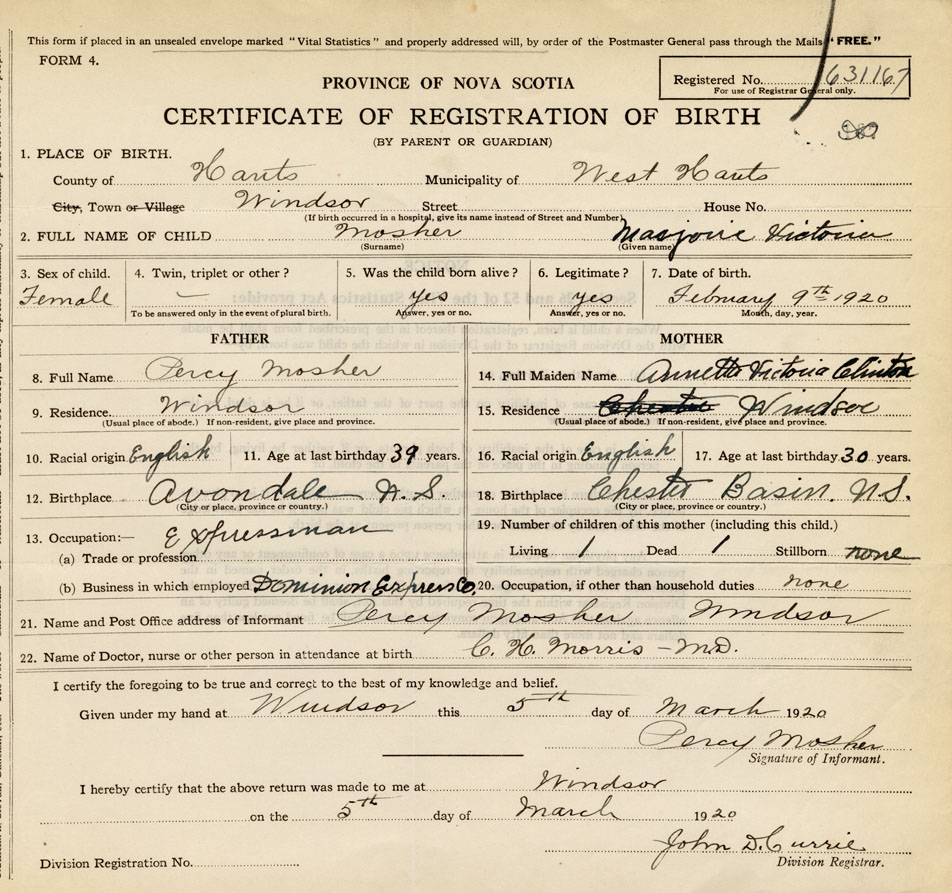 This form if placed in an unsealed envelope marked "Vital Statistics" and properly addressed will, by order of the Postmaster General pass through the Mails "FREE."
FORM 4.
PROVINCE OF NOVA SCOTIA
Registered No. 631167
For use of Registrar General only.
CERTIFICATE OF REGISTRATION OF BIRTH
(BY PARENT OR GUARDIAN)
1. PLACE OF BIRTH.
County of Hants Municipality of West Hants
City, Town or Village Windsor Street House No.
(If birth occurred in a hospital, give its name instead of Street and Number)
2. FULL NAME OF CHILD Mosher Marjorie Victoria
(Surname) (Given name)
3. Sex of child. 4. Twin, triplet or other? 5. Was the child born alive? 6. Legitimate? 7. Date of birth.
Female — yes yes February 9th 1920
To be answered only in the event of plural birth. Answer, yes or no. Answer, yes or no. Month, day, year.
FATHER MOTHER
8. Full Name Percy Mosher 14. Full Maiden Name Annetta Victoria Clinton
9. Residence Windsor 15. Residence Chester Windsor
(Usual place of abode.) If non-resident, give place and province. (Usual place of abode.) If non-resident, give place and province.
10. Racial origin English 11. Age at last birthday 39 years. 16. Racial origin English 17. Age at last birthday 30 years.
12. Birthplace Avondale N.S. 18. Birthplace Chester Basin. N.S.
(City or place, province or country.) (City or place, province or country.)
13. Occupation:— Expressman 19. Number of children of this mother (including this child.)
(a) Trade or profession Living 1 Dead 1 Stillborn none
(b) Business in which employed Dominion Express Co. 20. Occupation, if other than household duties none
21. Name and Post Office address of Informant Percy Mosher Windsor
22. Name of Doctor, nurse or other person in attendance at birth C. H. Morris - M.D.
I certify the foregoing to be true and correct to the best of my knowledge and belief.
Given under my hand at Windsor this 5th day of March 1920
Percy Mosher
Signature of Informant.
I hereby certify that the above return was made to me at Windsor
on the 5th day of March 1920
John D. Currie
Division Registration No. Division Registrar.